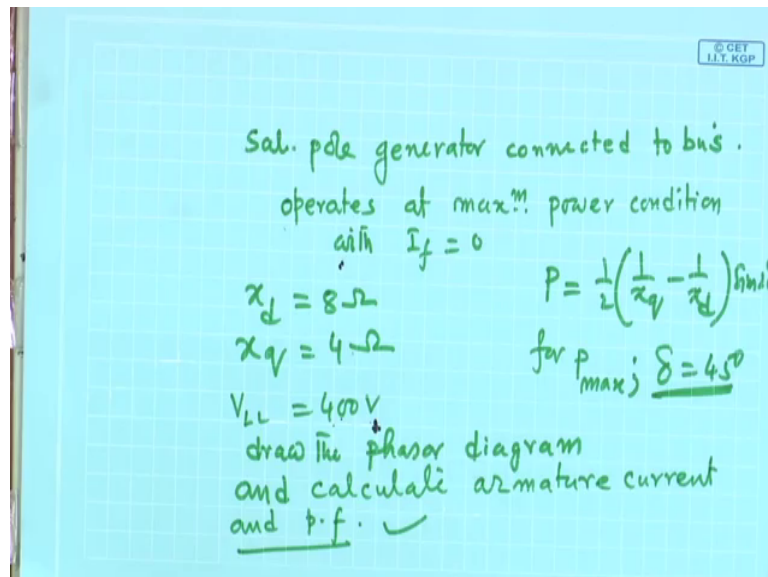 © CET
I.I.T. KGP
Sal. pole generator connected to bus.
operates at maxm. power condition
with If = 0
xd = 8 Ω
P = 1/2 (1/xq - 1/xd)
xq = 4 Ω
for Pmax; δ = 45°
VLL = 400 V
draw the phasor diagram
and calculate armature current
and p.f. ✓